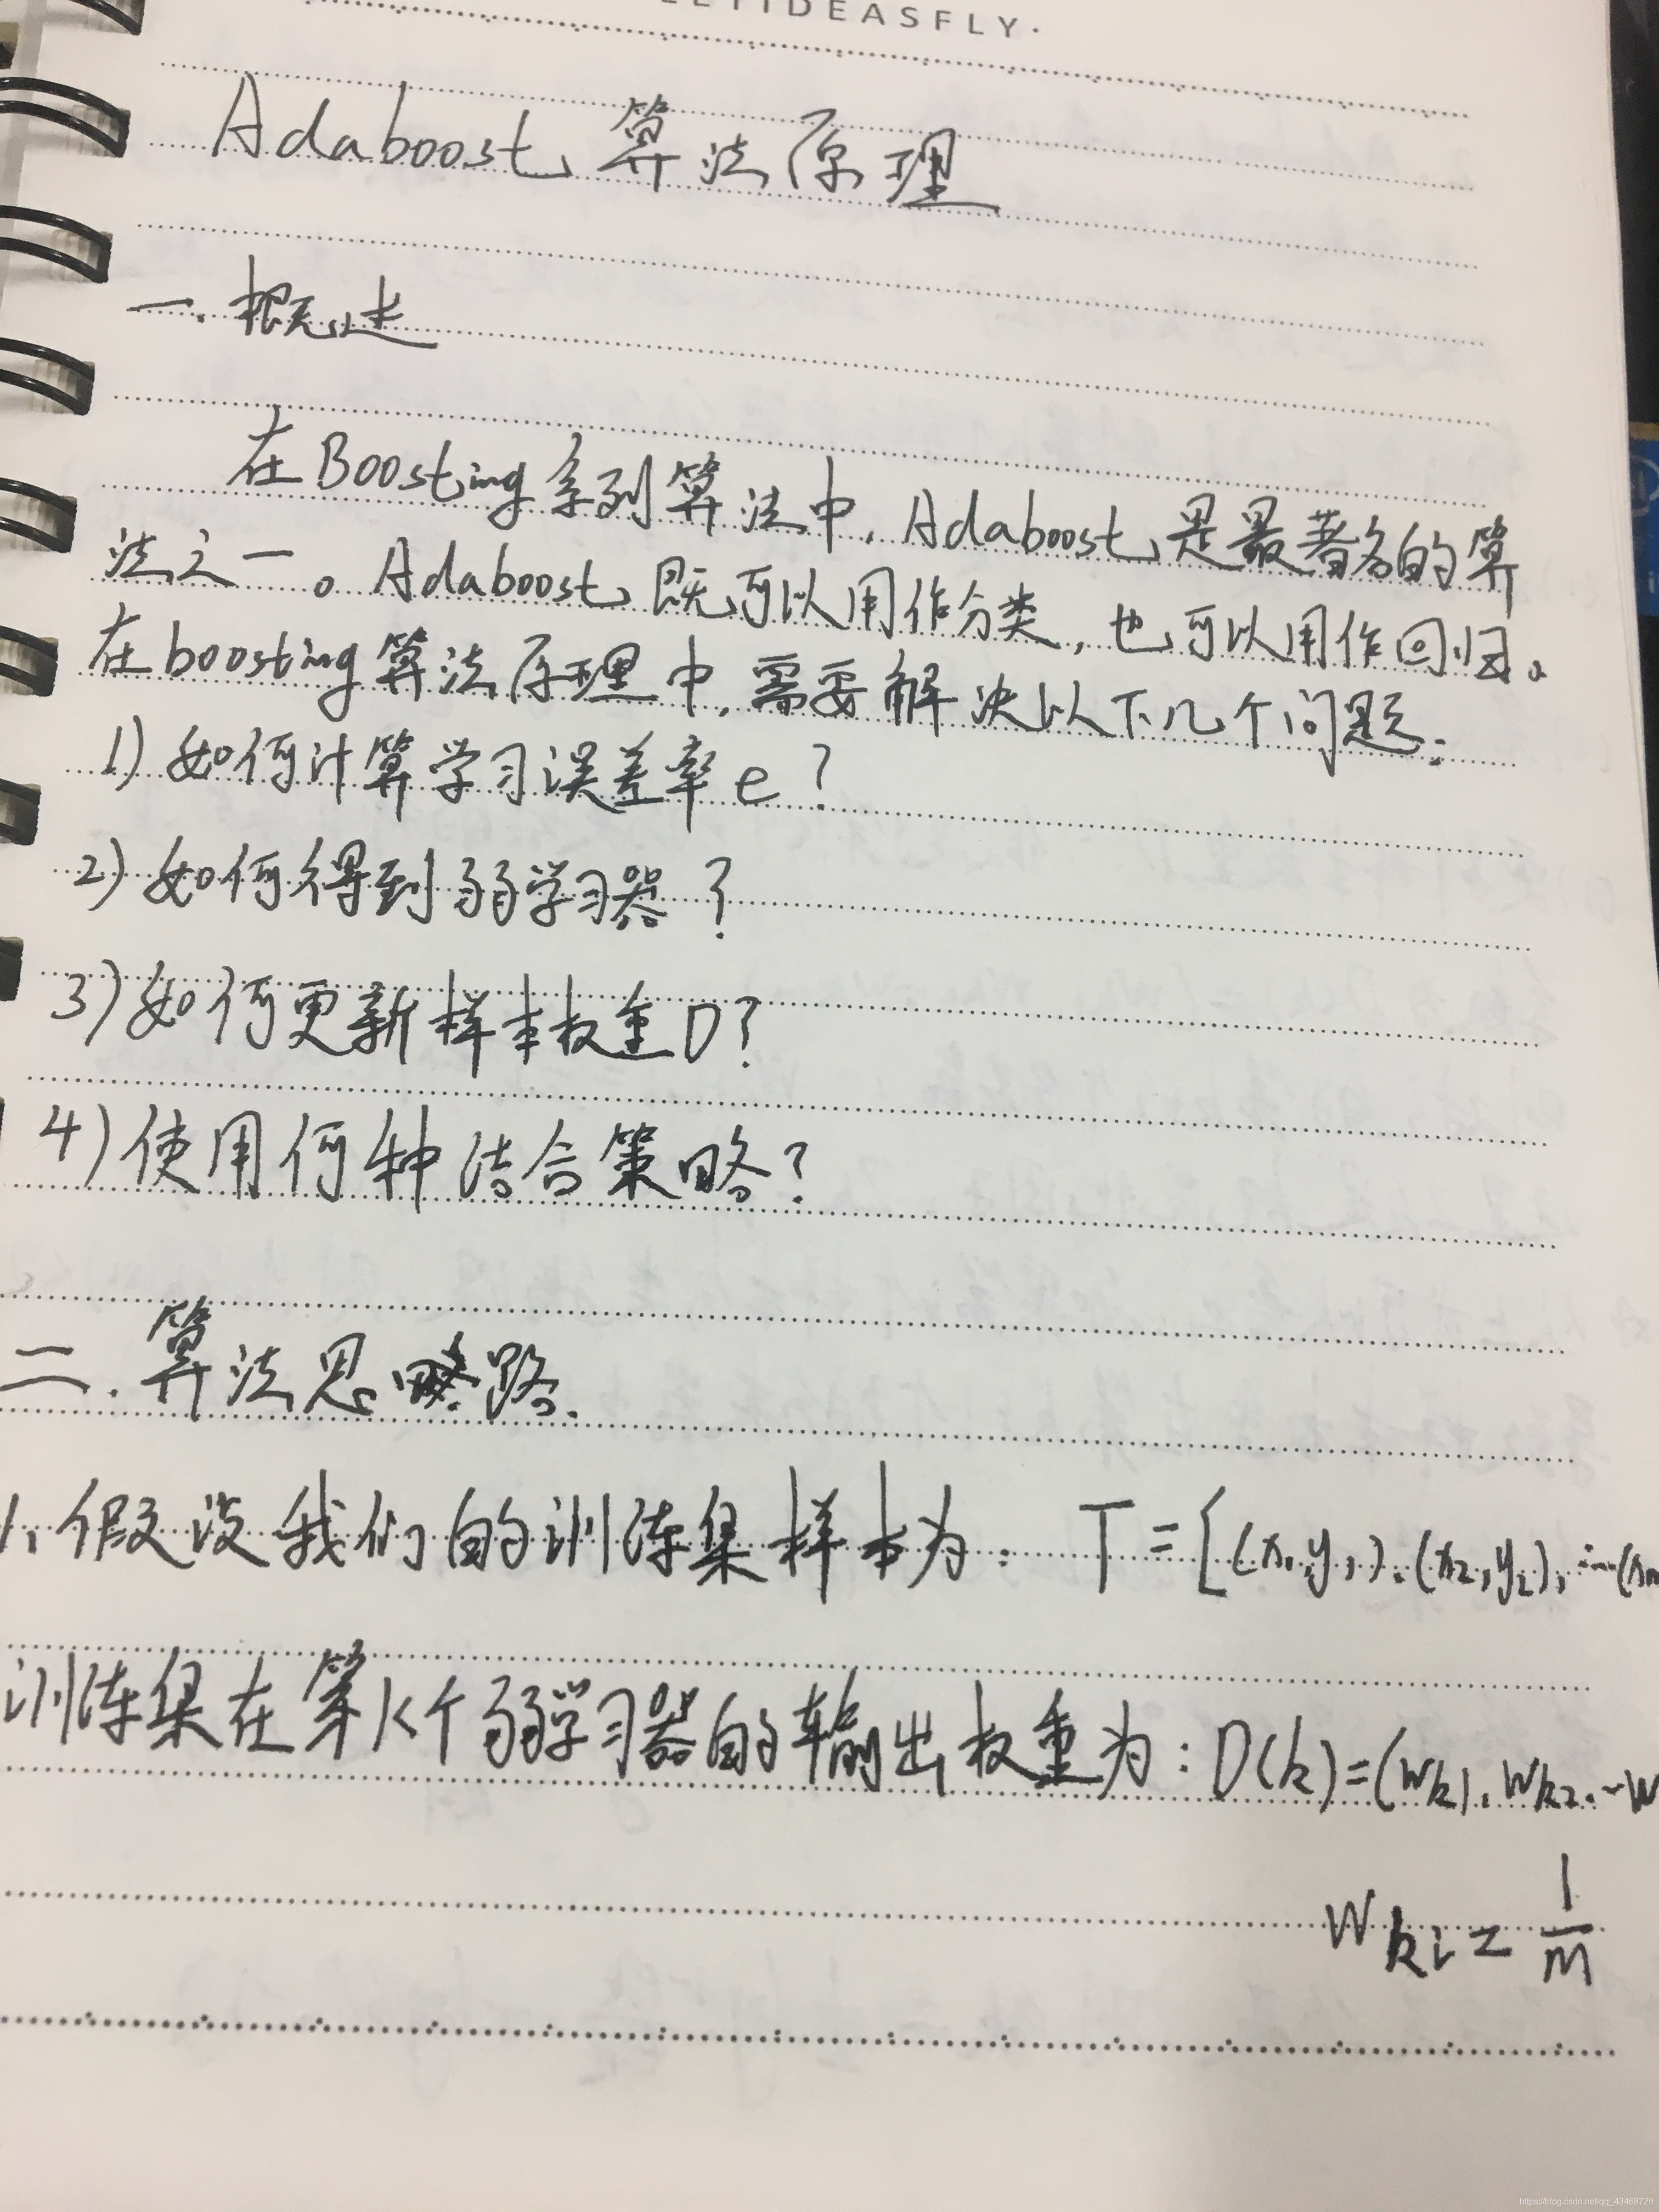 LETIDEASFLY.
Adaboost算法原理
一.概述
在Boosting系列算法中,Adaboost是最著名的算
法之一。Adaboost既可以用作分类,也可以用作回归。
在boosting算法原理中,需要解决以下几个问题:
1)如何计算学习误差率e?
2)如何得到弱学习器?
3)如何更新样本权重D?
4)使用何种结合策略?
二.算法思路.
1.假设我们的训练集样本为: T=[(x1,y1),(x2,y2),…(xm
训练集在第K个弱学习器的输出权重为:D(k)=(Wk1,Wk2,…W
Wki=1/m
https://blog.csdn.net/qq_43468729